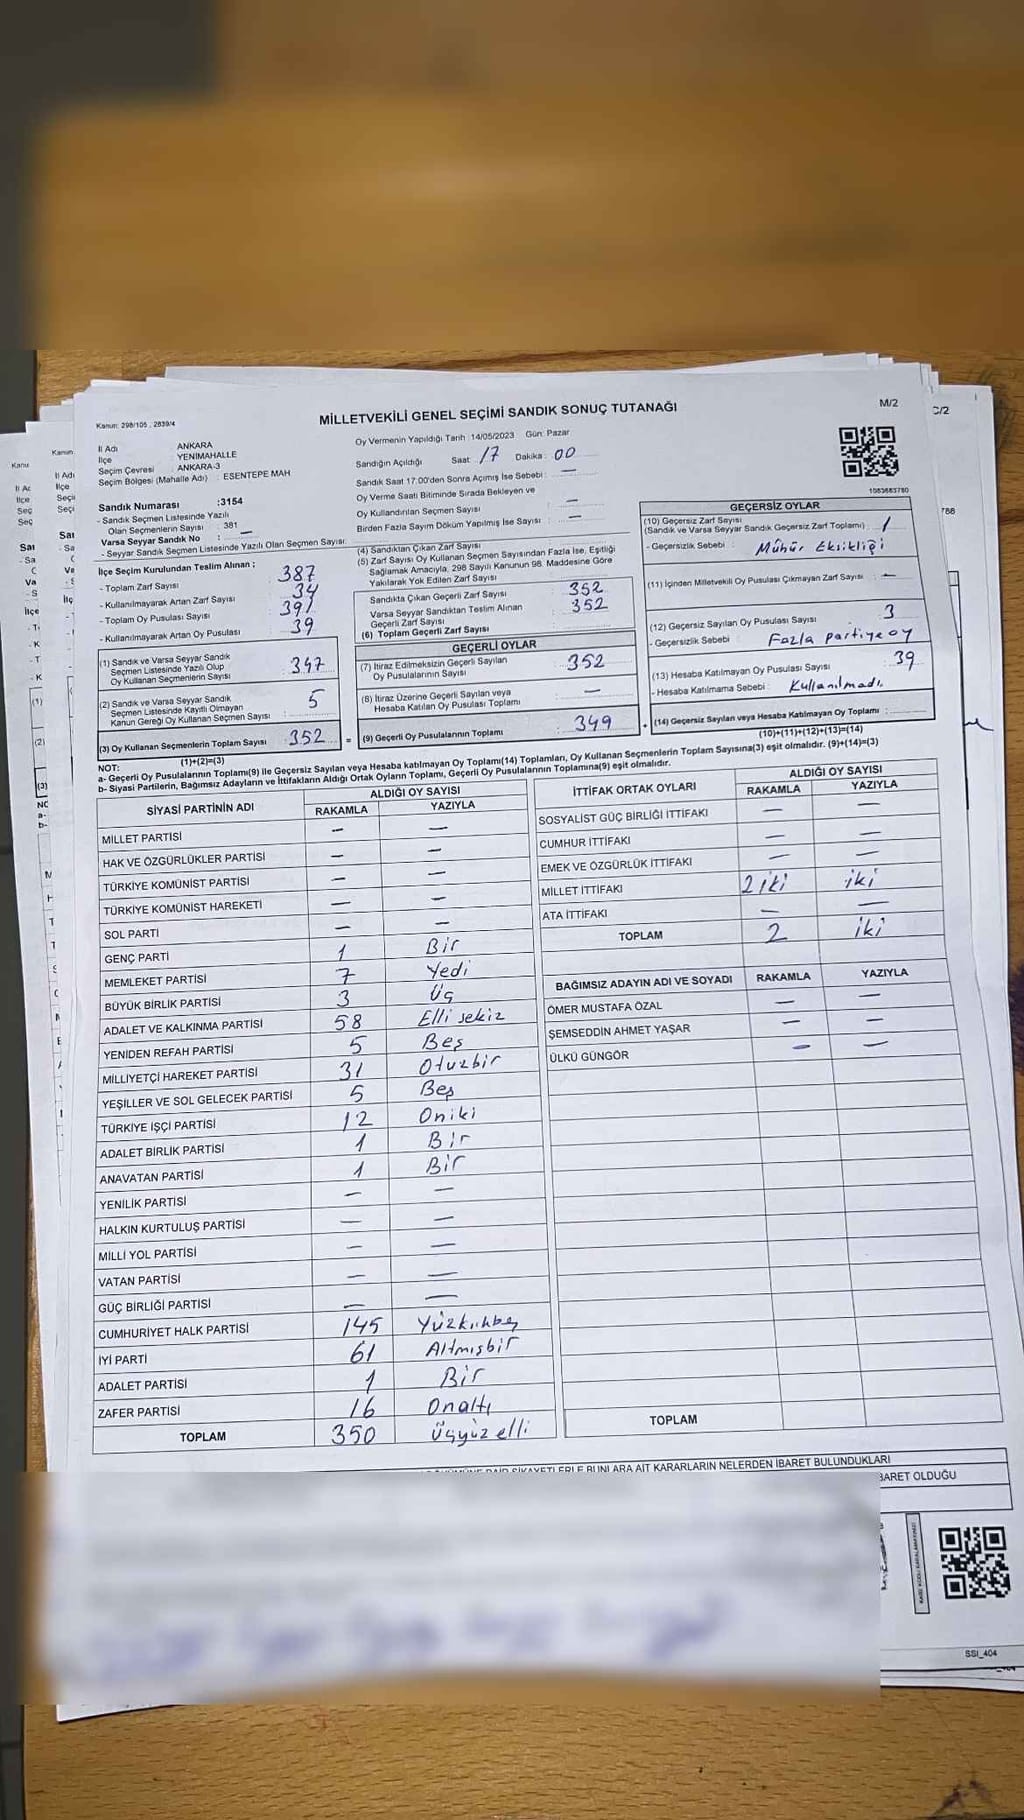 MİLLETVEKİLİ GENEL SEÇİMİ SANDIK SONUÇ TUTANAĞI
M/2
C/2
Kanun: 298/105 , 2839/4
İl Adı ANKARA
İlçe YENİMAHALLE
Seçim Çevresi : ANKARA-3
Seçim Bölgesi (Mahalle Adı) : ESENTEPE MAH
Sandık Numarası :3154
- Sandık Seçmen Listesinde Yazılı
Olan Seçmenlerin Sayısı : 381
Varsa Seyyar Sandık No : —
- Seyyar Sandık Seçmen Listesinde Yazılı Olan Seçmen Sayısı:
Oy Vermenin Yapıldığı Tarih :14/05/2023 Gün: Pazar
Sandığın Açıldığı Saat : 17 Dakika : 00
Sandık Saat 17:00'den Sonra Açılmış İse Sebebi : —
Oy Verme Saati Bitiminde Sırada Bekleyen ve
Oy Kullandırılan Seçmen Sayısı —
Birden Fazla Sayım Döküm Yapılmış İse Sayısı : —
1083683780
İlçe Seçim Kurulundan Teslim Alınan :
- Toplam Zarf Sayısı 387
- Kullanılmayarak Artan Zarf Sayısı 34
- Toplam Oy Pusulası Sayısı 391
- Kullanılmayarak Artan Oy Pusulası 39
(1) Sandık ve Varsa Seyyar Sandık
Seçmen Listesinde Yazılı Olup
Oy Kullanan Seçmenlerin Sayısı 347
(2) Sandık ve Varsa Seyyar Sandık
Seçmen Listesinde Kayıtlı Olmayan
Kanun Gereği Oy Kullanan Seçmen Sayısı 5
(3) Oy Kullanan Seçmenlerin Toplam Sayısı 352
(1)+(2)=(3)
(4) Sandıktan Çıkan Zarf Sayısı
(5) Zarf Sayısı Oy Kullanan Seçmen Sayısından Fazla İse, Eşitliği
Sağlamak Amacıyla, 298 Sayılı Kanunun 98. Maddesine Göre
Yakılarak Yok Edilen Zarf Sayısı
Sandıkta Çıkan Geçerli Zarf Sayısı 352
Varsa Seyyar Sandıktan Teslim Alınan
Geçerli Zarf Sayısı 352
(6) Toplam Geçerli Zarf Sayısı
GEÇERLİ OYLAR
(7) İtiraz Edilmeksizin Geçerli Sayılan
Oy Pusulalarının Sayısı 352
(8) İtiraz Üzerine Geçerli Sayılan veya
Hesaba Katılan Oy Pusulası Toplamı —
= (9) Geçerli Oy Pusulalarının Toplamı 349
GEÇERSİZ OYLAR
(10) Geçersiz Zarf Sayısı
(Sandık ve Varsa Seyyar Sandık Geçersiz Zarf Toplamı) : 1
- Geçersizlik Sebebi : Mühür Eksikliği
(11) İçinden Milletvekili Oy Pusulası Çıkmayan Zarf Sayısı : —
(12) Geçersiz Sayılan Oy Pusulası Sayısı 3
- Geçersizlik Sebebi Fazla partiye oy
(13) Hesaba Katılmayan Oy Pusulası Sayısı 39
- Hesaba Katılmama Sebebi : Kullanılmadı.
+ (14) Geçersiz Sayılan veya Hesaba Katılmayan Oy Toplamı :
(10)+(11)+(12)+(13)=(14)
NOT:
a- Geçerli Oy Pusulalarının Toplamı(9) ile Geçersiz Sayılan veya Hesaba katılmayan Oy Toplamı(14) Toplamları, Oy Kullanan Seçmenlerin Toplam Sayısına(3) eşit olmalıdır. (9)+(14)=(3)
b- Siyasi Partilerin, Bağımsız Adayların ve İttifakların Aldığı Ortak Oyların Toplamı, Geçerli Oy Pusulalarının Toplamına(9) eşit olmalıdır.
SİYASİ PARTİNİN ADI ALDIĞI OY SAYISI
RAKAMLA YAZIYLA
MİLLET PARTİSİ — —
HAK VE ÖZGÜRLÜKLER PARTİSİ — —
TÜRKİYE KOMÜNİST PARTİSİ — —
TÜRKİYE KOMÜNİST HAREKETİ — —
SOL PARTİ — —
GENÇ PARTİ 1 Bir
MEMLEKET PARTİSİ 7 Yedi
BÜYÜK BİRLİK PARTİSİ 3 Üç
ADALET VE KALKINMA PARTİSİ 58 Elli sekiz
YENİDEN REFAH PARTİSİ 5 Beş
MİLLİYETÇİ HAREKET PARTİSİ 31 Otuzbir
YEŞİLLER VE SOL GELECEK PARTİSİ 5 Beş
TÜRKİYE İŞÇİ PARTİSİ 12 Oniki
ADALET BİRLİK PARTİSİ 1 Bir
ANAVATAN PARTİSİ 1 Bir
YENİLİK PARTİSİ — —
HALKIN KURTULUŞ PARTİSİ — —
MİLLİ YOL PARTİSİ — —
VATAN PARTİSİ — —
GÜÇ BİRLİĞİ PARTİSİ — —
CUMHURİYET HALK PARTİSİ 145 Yüzkırkbeş
İYİ PARTİ 61 Altmışbir
ADALET PARTİSİ 1 Bir
ZAFER PARTİSİ 16 Onaltı
TOPLAM 350 Üçyüz elli
İTTİFAK ORTAK OYLARI ALDIĞI OY SAYISI
RAKAMLA YAZIYLA
SOSYALİST GÜÇ BİRLİĞİ İTTİFAKI — —
CUMHUR İTTİFAKI — —
EMEK VE ÖZGÜRLÜK İTTİFAKI — —
MİLLET İTTİFAKI 2 iki iki
ATA İTTİFAKI — —
TOPLAM 2 iki
BAĞIMSIZ ADAYIN ADI VE SOYADI RAKAMLA YAZIYLA
ÖMER MUSTAFA ÖZAL — —
ŞEMSEDDİN AHMET YAŞAR — —
ÜLKÜ GÜNGÖR — —
TOPLAM
ŞİKAYETLERLE BUNLARA AİT KARARLARIN NELERDEN İBARET BULUNDUKLARI
BARET OLDUĞU
SSI_404